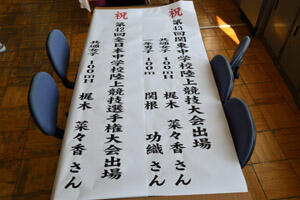 祝
第43回関東中学校陸上競技大会出場
共通女子 100mH 梶木 菜々香さん
一年男子 100m 関根 功織さん
祝
第42回全日本中学校陸上競技選手権大会出場
共通女子 100mH 梶木 菜々香さん